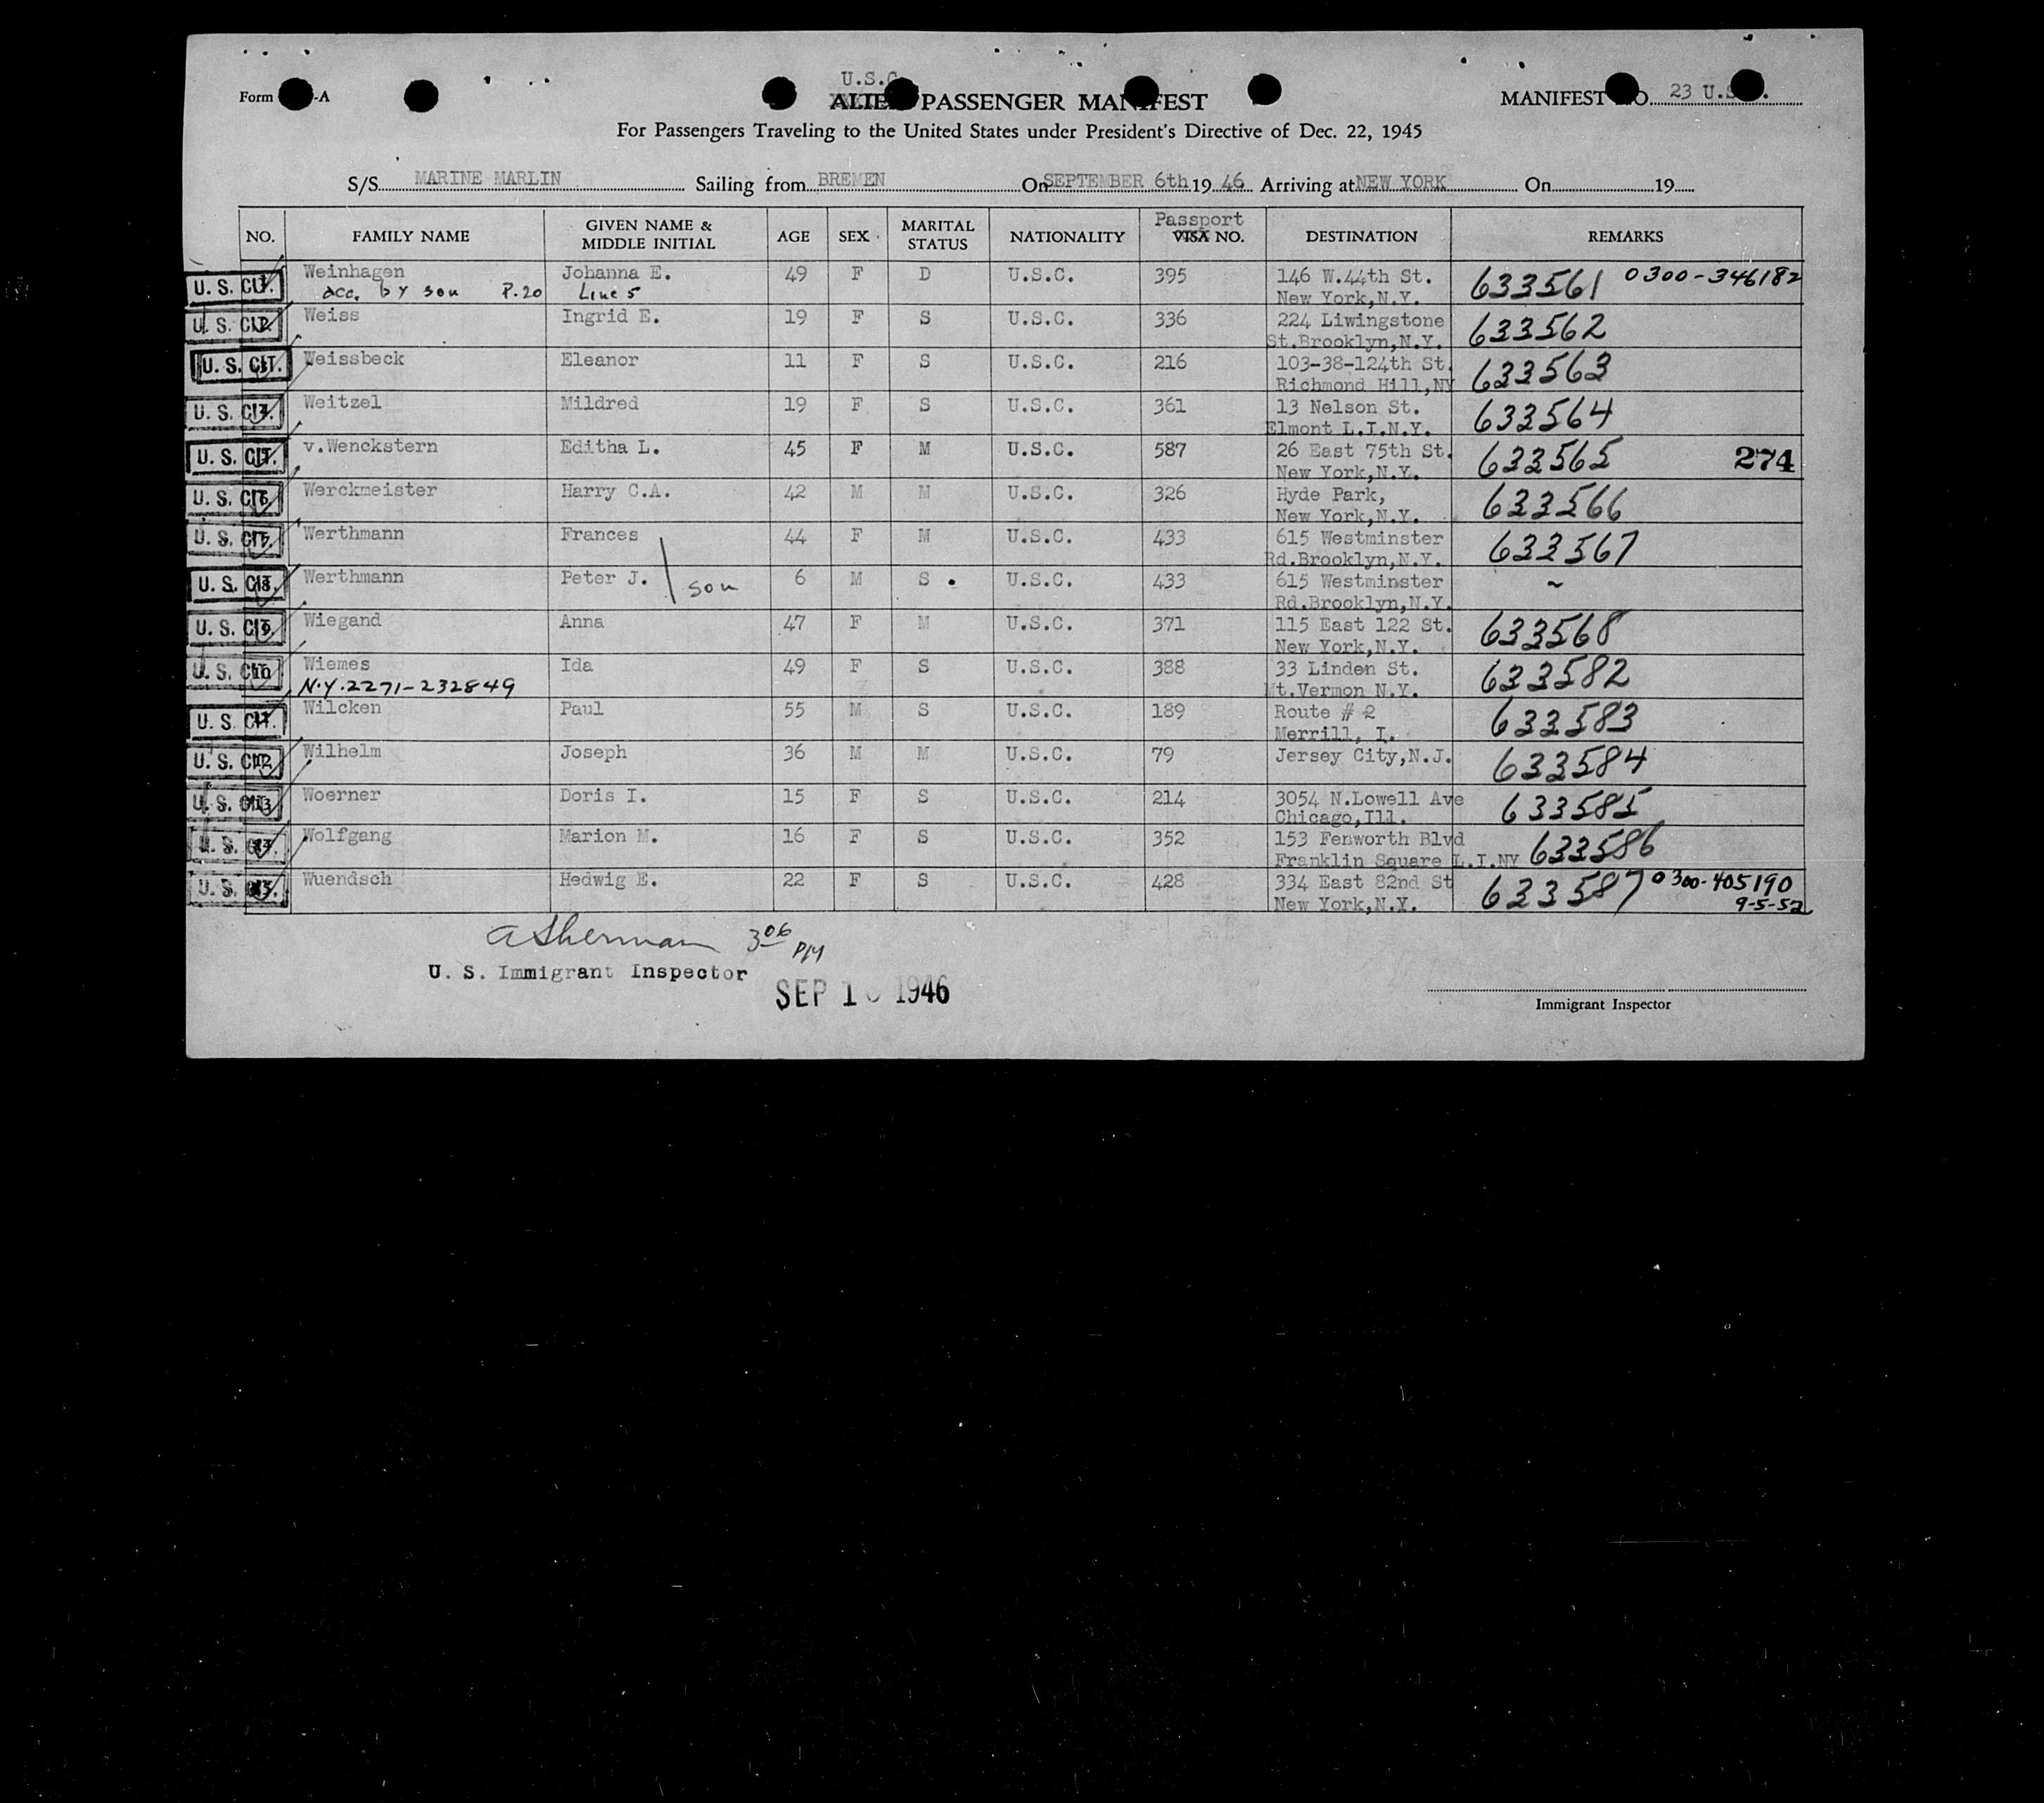 U.S.C.
Form -A ALIEN PASSENGER MANIFEST MANIFEST NO. 23 U.S.
For Passengers Traveling to the United States under President's Directive of Dec. 22, 1945
S/S MARINE MARLIN Sailing from BREMEN On SEPTEMBER 6th 19 46 Arriving at NEW YORK On 19
NO. FAMILY NAME GIVEN NAME & MIDDLE INITIAL AGE SEX MARITAL STATUS NATIONALITY Passport VISA NO. DESTINATION REMARKS
U. S. CIT. 1. Weinhagen Johanna E. 49 F D U.S.C. 395 146 W.44th St. 633561 0300-346182
acc. by son P.20 Line 5 New York,N.Y.
U. S. CIT. 2. Weiss Ingrid E. 19 F S U.S.C. 336 224 Liwingstone 633562
St.Brooklyn,N.Y.
U. S. CIT. 3. Weissbeck Eleanor 11 F S U.S.C. 216 103-38-124th St. 633563
Richmond Hill,NY
U. S. CIT. 4. Weitzel Mildred 19 F S U.S.C. 361 13 Nelson St. 633564
Elmont L.I.N.Y.
U. S. CIT. 5. v.Wenckstern Editha L. 45 F M U.S.C. 587 26 East 75th St. 633565 274
New York,N.Y.
U. S. CIT. 6. Werckmeister Harry C.A. 42 M M U.S.C. 326 Hyde Park, 633566
New York,N.Y.
U. S. CIT. 7. Werthmann Frances 44 F M U.S.C. 433 615 Westminster 633567
Rd.Brooklyn,N.Y.
U. S. CIT. 8. Werthmann Peter J. son 6 M S U.S.C. 433 615 Westminster ~
Rd.Brooklyn,N.Y.
U. S. CIT. 9. Wiegand Anna 47 F M U.S.C. 371 115 East 122 St. 633568
New York,N.Y.
U. S. CIT. 10 Wiemes Ida 49 F S U.S.C. 388 33 Linden St. 633582
N.Y.2271-232849 Mt.Vermon N.Y.
U. S. CIT. 11 Wilcken Paul 55 M S U.S.C. 189 Route # 2 633583
Merrill, I.
U. S. CIT. 12 Wilhelm Joseph 36 M M U.S.C. 79 Jersey City,N.J. 633584
U. S. CIT. 13 Woerner Doris I. 15 F S U.S.C. 214 3054 N.Lowell Ave 633585
Chicago,Ill.
U. S. CIT. 14 Wolfgang Marion M. 16 F S U.S.C. 352 153 Fenworth Blvd 633586
Franklin Square L.I.NY
U. S. CIT. 15. Wuendsch Hedwig E. 22 F S U.S.C. 428 334 East 82nd St 633587 0300-405190
New York,N.Y. 9-5-52
A Sherman 3 06 PM
U. S. Immigrant Inspector
SEP 1 1946
Immigrant Inspector